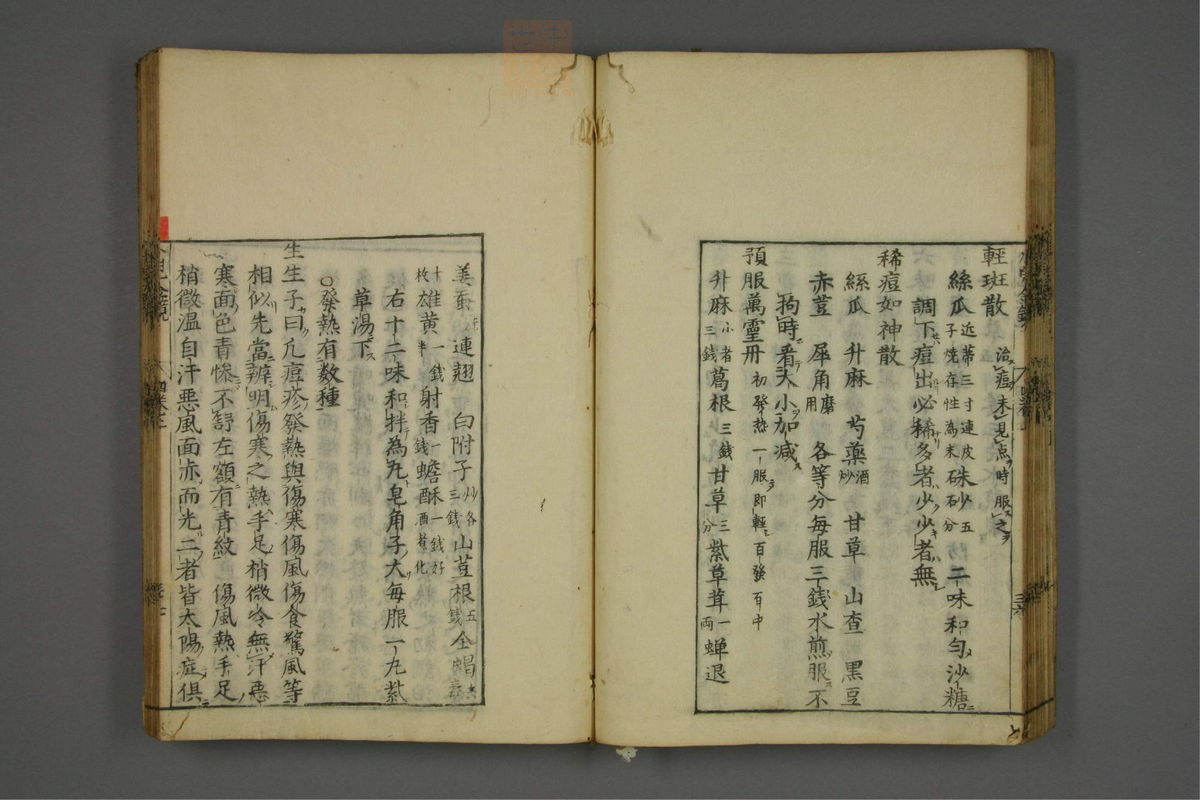 輕斑散 治痘未見点時服之
絲瓜近蒂三寸連皮子燒存性為末 硃砂五分 二味和勻沙糖
調下痘出必稀多者少少者無
稀痘如神散
絲瓜 升麻 芍藥酒炒 甘草 山査 黒豆
赤荳 犀角磨用 各等分每服三錢水煎服不
拘時看大小加减
預服萬靈丹 初發热一服即輕百發百中
升麻 葛根三錢 甘草三分 紫草茸一両 蝉退
姜蚕 連翹 白附子炒各三錢 山荳根五錢 全蝎
十枚 雄黄一錢半 射香一錢 蟾酥一錢好酒煮化
右十二味和拌為丸皂角子大每服一丸紫
草湯下
○發熱有数種
生生子曰凢痘疹發熱與傷寒傷風傷食驚風等
相似先當辨明傷寒之熱手足梢微冷無汗惡
寒面色青慘不舒左額有青紋 傷風熱手足
梢微温自汗惡風面赤而光二者皆太陽症俱